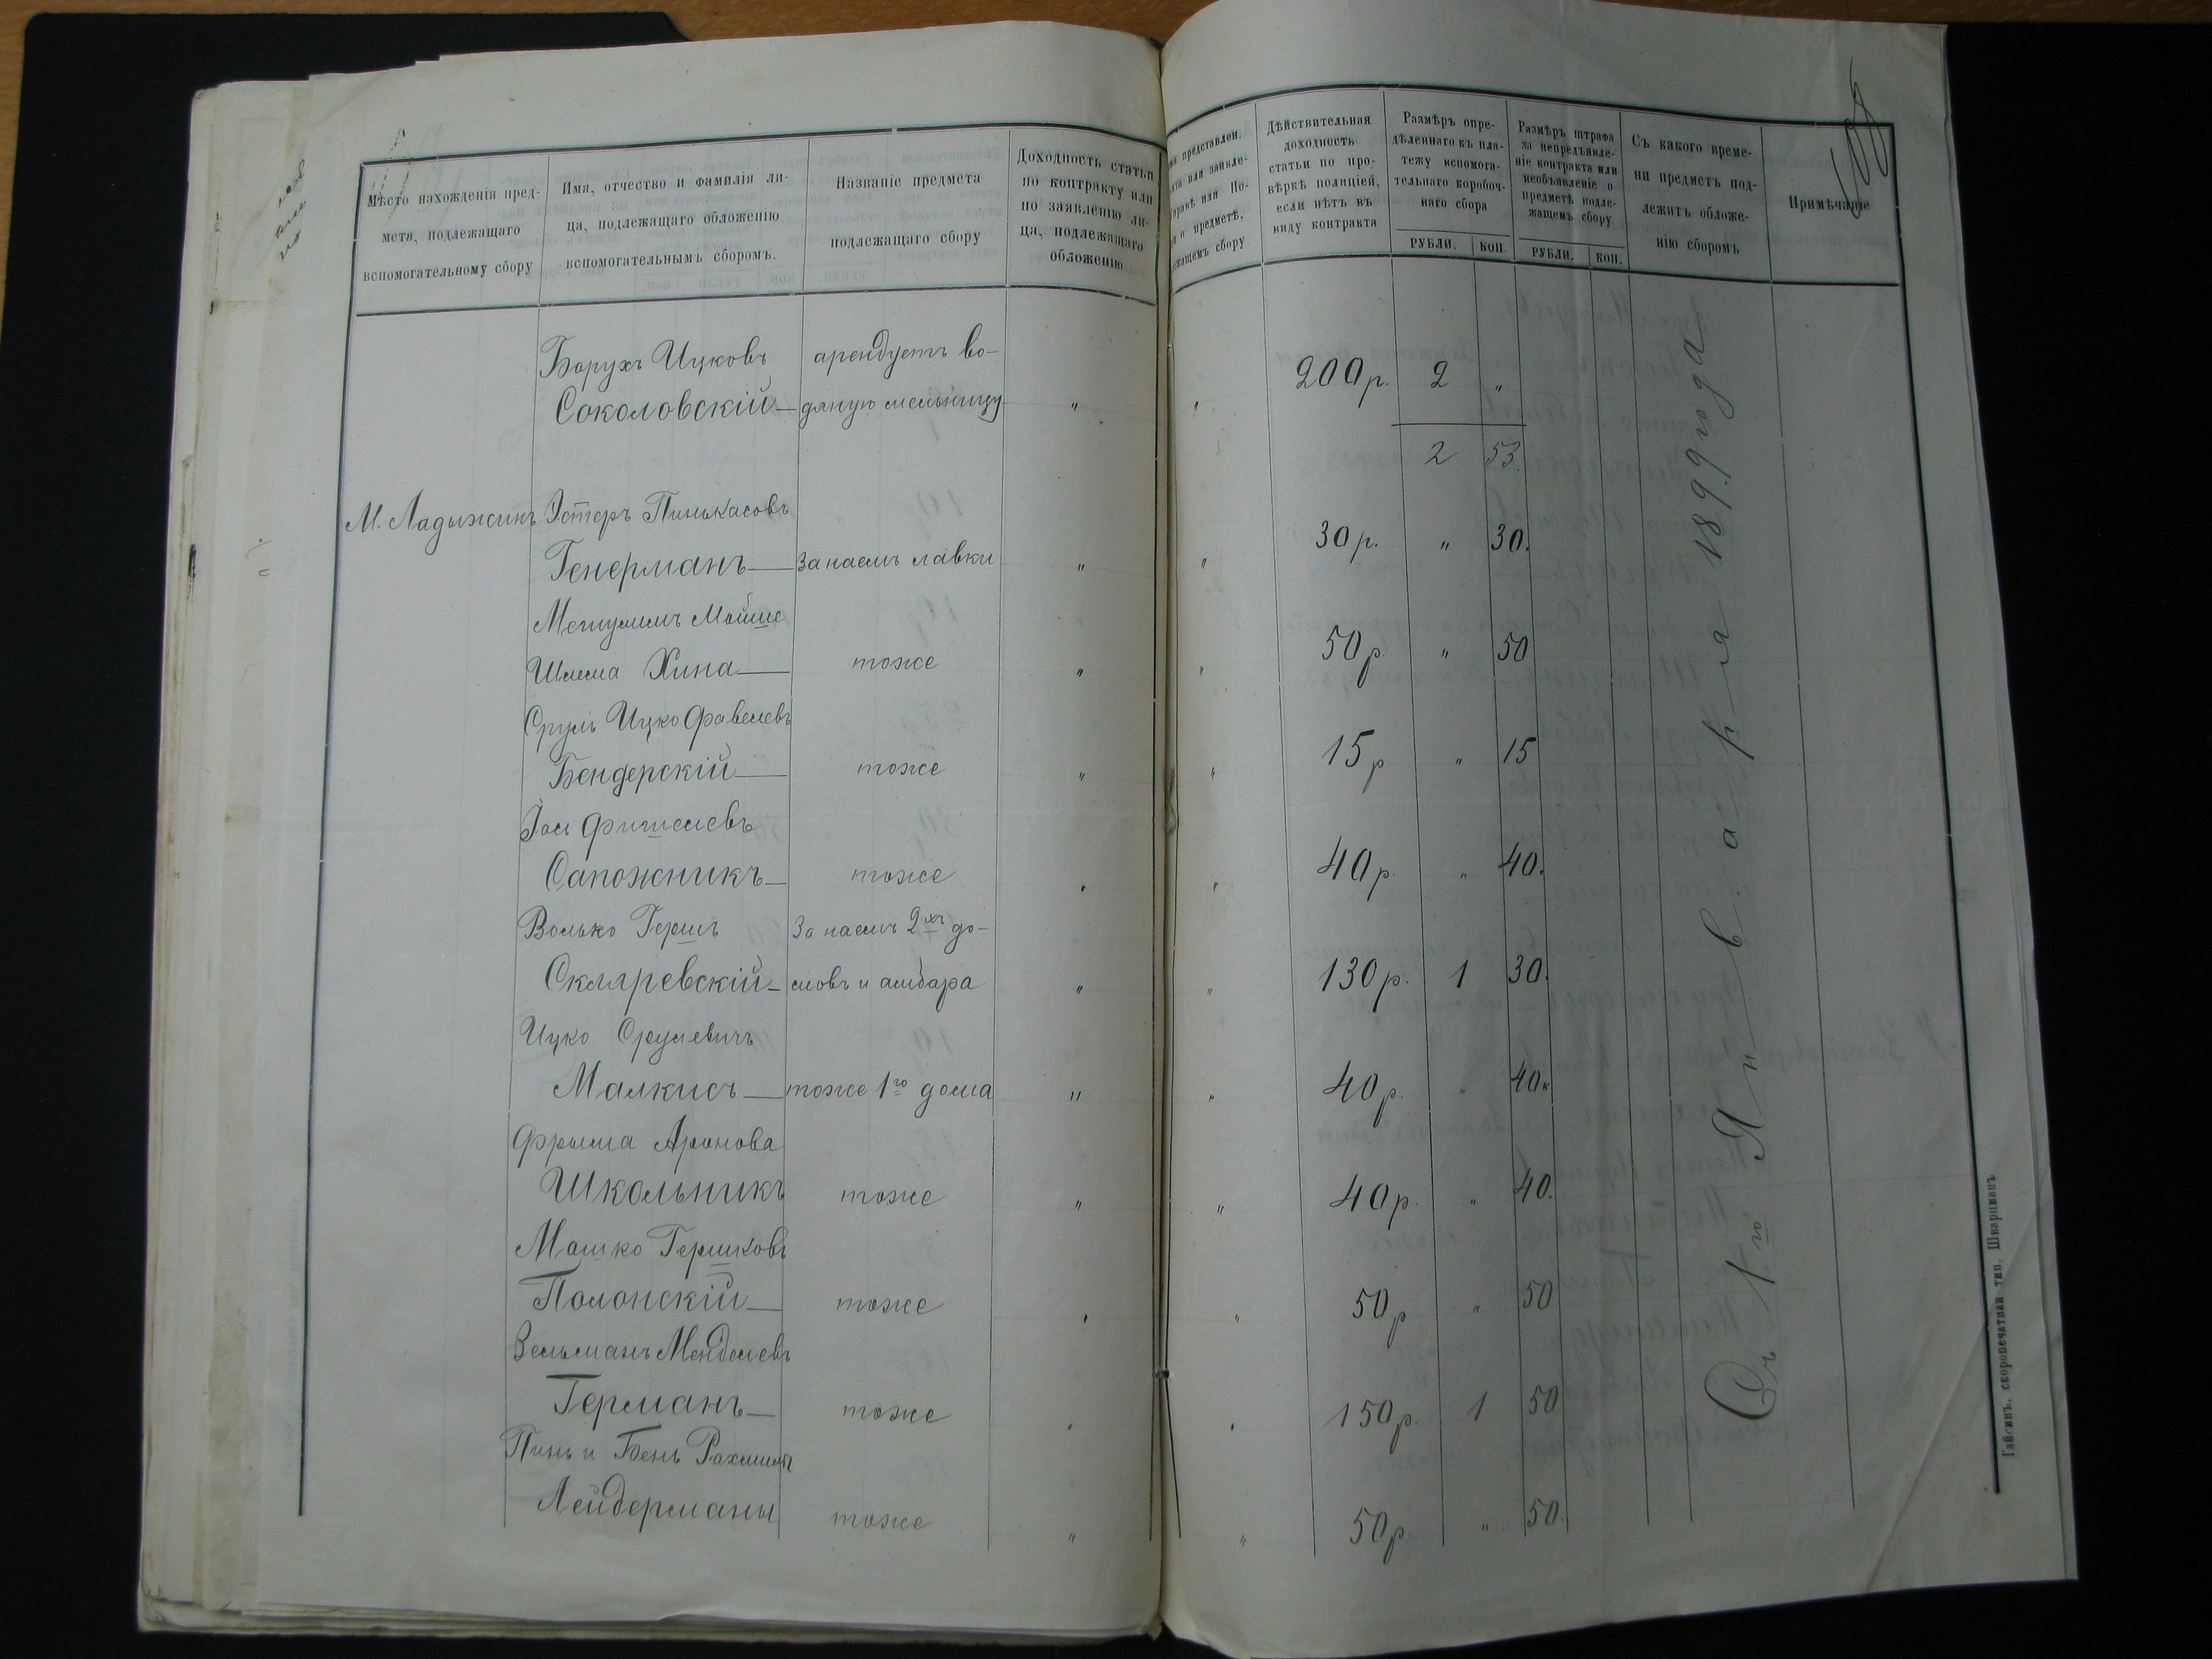 108
Мѣсто нахожденія пред-
мета, подлежащаго
вспомогательному сбору
Имя, отчество и фамилія ли-
ца, подлежащаго обложенію
вспомогательнымъ сборомъ.
Названіе предмета
подлежащаго сбору
Доходность статьи
по контракту или
по заявленію ли-
ца, подлежащаго
обложенію
представлен.
или заявле-
или По-
о предметѣ,
сбору
Дѣйствительная
доходность
статьи по про-
вѣркѣ полиціей,
если нѣтъ въ
виду контракта
Размѣръ опре-
дѣленнаго къ пла-
тежу вспомога-
тельнаго коробоч-
наго сбора
РУБЛИ. КОП.
Размѣръ штрафа
за непредъявле-
ніе контракта или
необъявленіе о
предметѣ подле-
жащемъ сбору
РУБЛИ. КОП.
Съ какого време-
ни предметъ под-
лежитъ обложе-
нію сборомъ
Примѣчаніе
Борухъ Ицковъ арендуетъ во-
Соколовскій — дяную мельницу " " 200 р. 2 "
2 53.
М. Ладыжинъ Эстеръ Пинькасовъ
Генерман — За наемъ лавки " " 30 р. " 30.
Мойше
Шлема Хина — тоже " " 50 р. " 50
Сруль Ицко Фавелевъ
Бендерскій — тоже " " 15 р " 15
Фишелевъ
Сапожникъ — тоже " " 40 р. " 40.
Волько Гершъ За наемъ 2хъ до-
Скляревскій — мовъ и амбара " " 130 р. 1 30.
Ицко Срулевичъ
Малкисъ — тоже 1го дома " " 40 р. " 40.
Фрыма Аронова
Школьникъ тоже " " 40 р. " 40.
Мошко Гершковъ
Полонскій — тоже " " 50 р " 50
Зельманъ Менделевъ
Германъ — тоже " " 150 р. 1 50
Пинь и Бень
Лейдерманы тоже " " 50 р. " 50.
Съ 1го Января 1899 года
Гайсинъ, скоропечатная тип. Шварцманъ